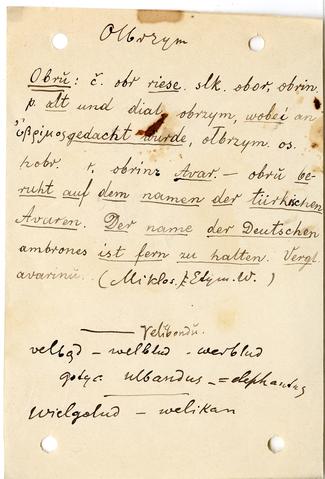 Olbrzym
Obrŭ: č. obr riese. slk. obor, obrin.
p. alt und dial. obrzym, wobei an
ὄβριμος gedacht wurde, olbrzym. os.
hobr. r. obrinŭ Avar. – obrŭ be-
ruht auf dem namen der türkischen
Avaren. Der name der Deutschen
ambrones ist fern zu halten. Vergl.
avarinŭ. (Miklos. Etym. W.)
Velbondŭ.
velbąd – welblud – werblud
gotyc. ulbandus = elephantus
wielgolud – welikan